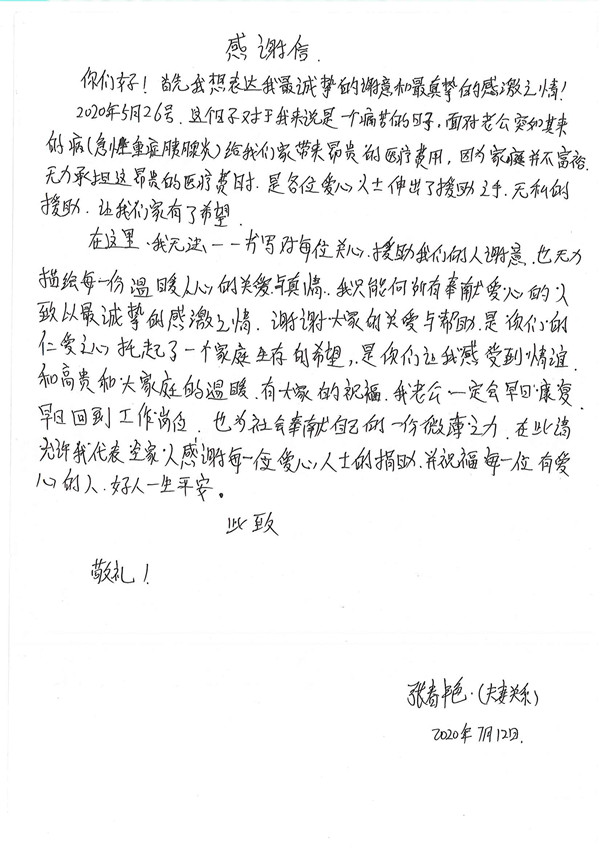 感谢信.
你们好！首先我想表达我最诚挚的谢意和最真挚的感激之情！
2020年5月26号.这个日子对于我来说是一个痛苦的日子,面对老公突如其来
的病(急性重症胰腺炎)给我们家带来昂贵的医疗费用,因为家庭并不富裕.
无力承担这昂贵的医疗费时.是各位爱心人士伸出了援助之手.无私的
援助.让我们家有了希望.
在这里.我无法一一书写对每位关心.援助我们的人谢意.也无力
描绘每一份温暖人心的关爱与真情.我只能向所有奉献爱心的人
致以最诚挚的感激之情.谢谢大家的关爱与帮助.是你们的
仁爱之心托起了一个家庭生存的希望,是你们让我感受到情谊
和高贵和大家庭的温暖.有大家的祝福.我老公一定会早日康复.
早日回到工作岗位.也为社会奉献自己的一份微薄之力.在此请
允许我代表全家人感谢每一位爱心人士的捐助.并祝福每一位有爱
心的人.好人一生平安。
此致
敬礼！
张春艳.(夫妻关系)
2020年7月12日.